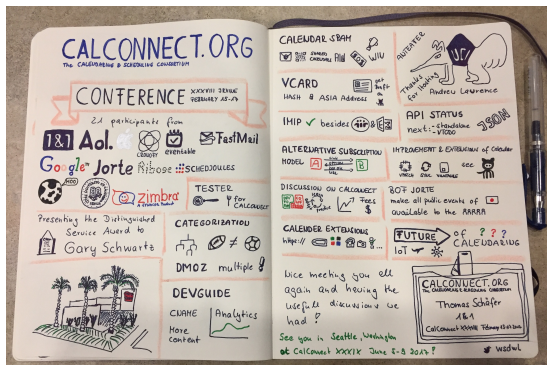 CALCONNECT.ORG
The CALENDARING & SCHEDULING CONSORTIUM
CONFERENCE XXXVIII IRVINE
FEBRUARY
21 participants from
1&1 Aol. eventable FastMail
Google Jorte Ribose SCHEDJOULES
zimbra
TESTER
for
CALCONNECT
Presenting the Distinguished
Service Award to
Gary Schwartz
CATEGORIZATION
≠
DMOZ multiple !
DEVGUIDE
CNAME Analytics
More
content
CALENDAR SPAM
VCARD
HASH & ASIA Address
IMIP ✓ besides &
ALTERNATIVE SUBSCRIPTION
MODEL A B
DISCUSSION ON CALCONNECT
Fees
$
CALENDER EXTENSIONS
https://
Nice meeting you all
again and having the
usefull discussions we
had !
See you in Seattle, Washington
at CalConnect XXXIX June 5-9 2017!
ANTEATER
UCI
Thanks
for Hosting
Andreu Lawrence
API STATUS
next: - standalone
- VTODO
JSON
IMPROVEMENT & EXTENSIONS of Calendar
see
BOF JORTE
make all public events of
available to the
FUTURE of ? ? ?
CALENDARING
IoT
CALCONNECT.ORG
The CALENDARING & SCHEDULING CONSORTIUM
Thomas Schäfer
1&1
CalConnect XXXVIII February
wsdwl